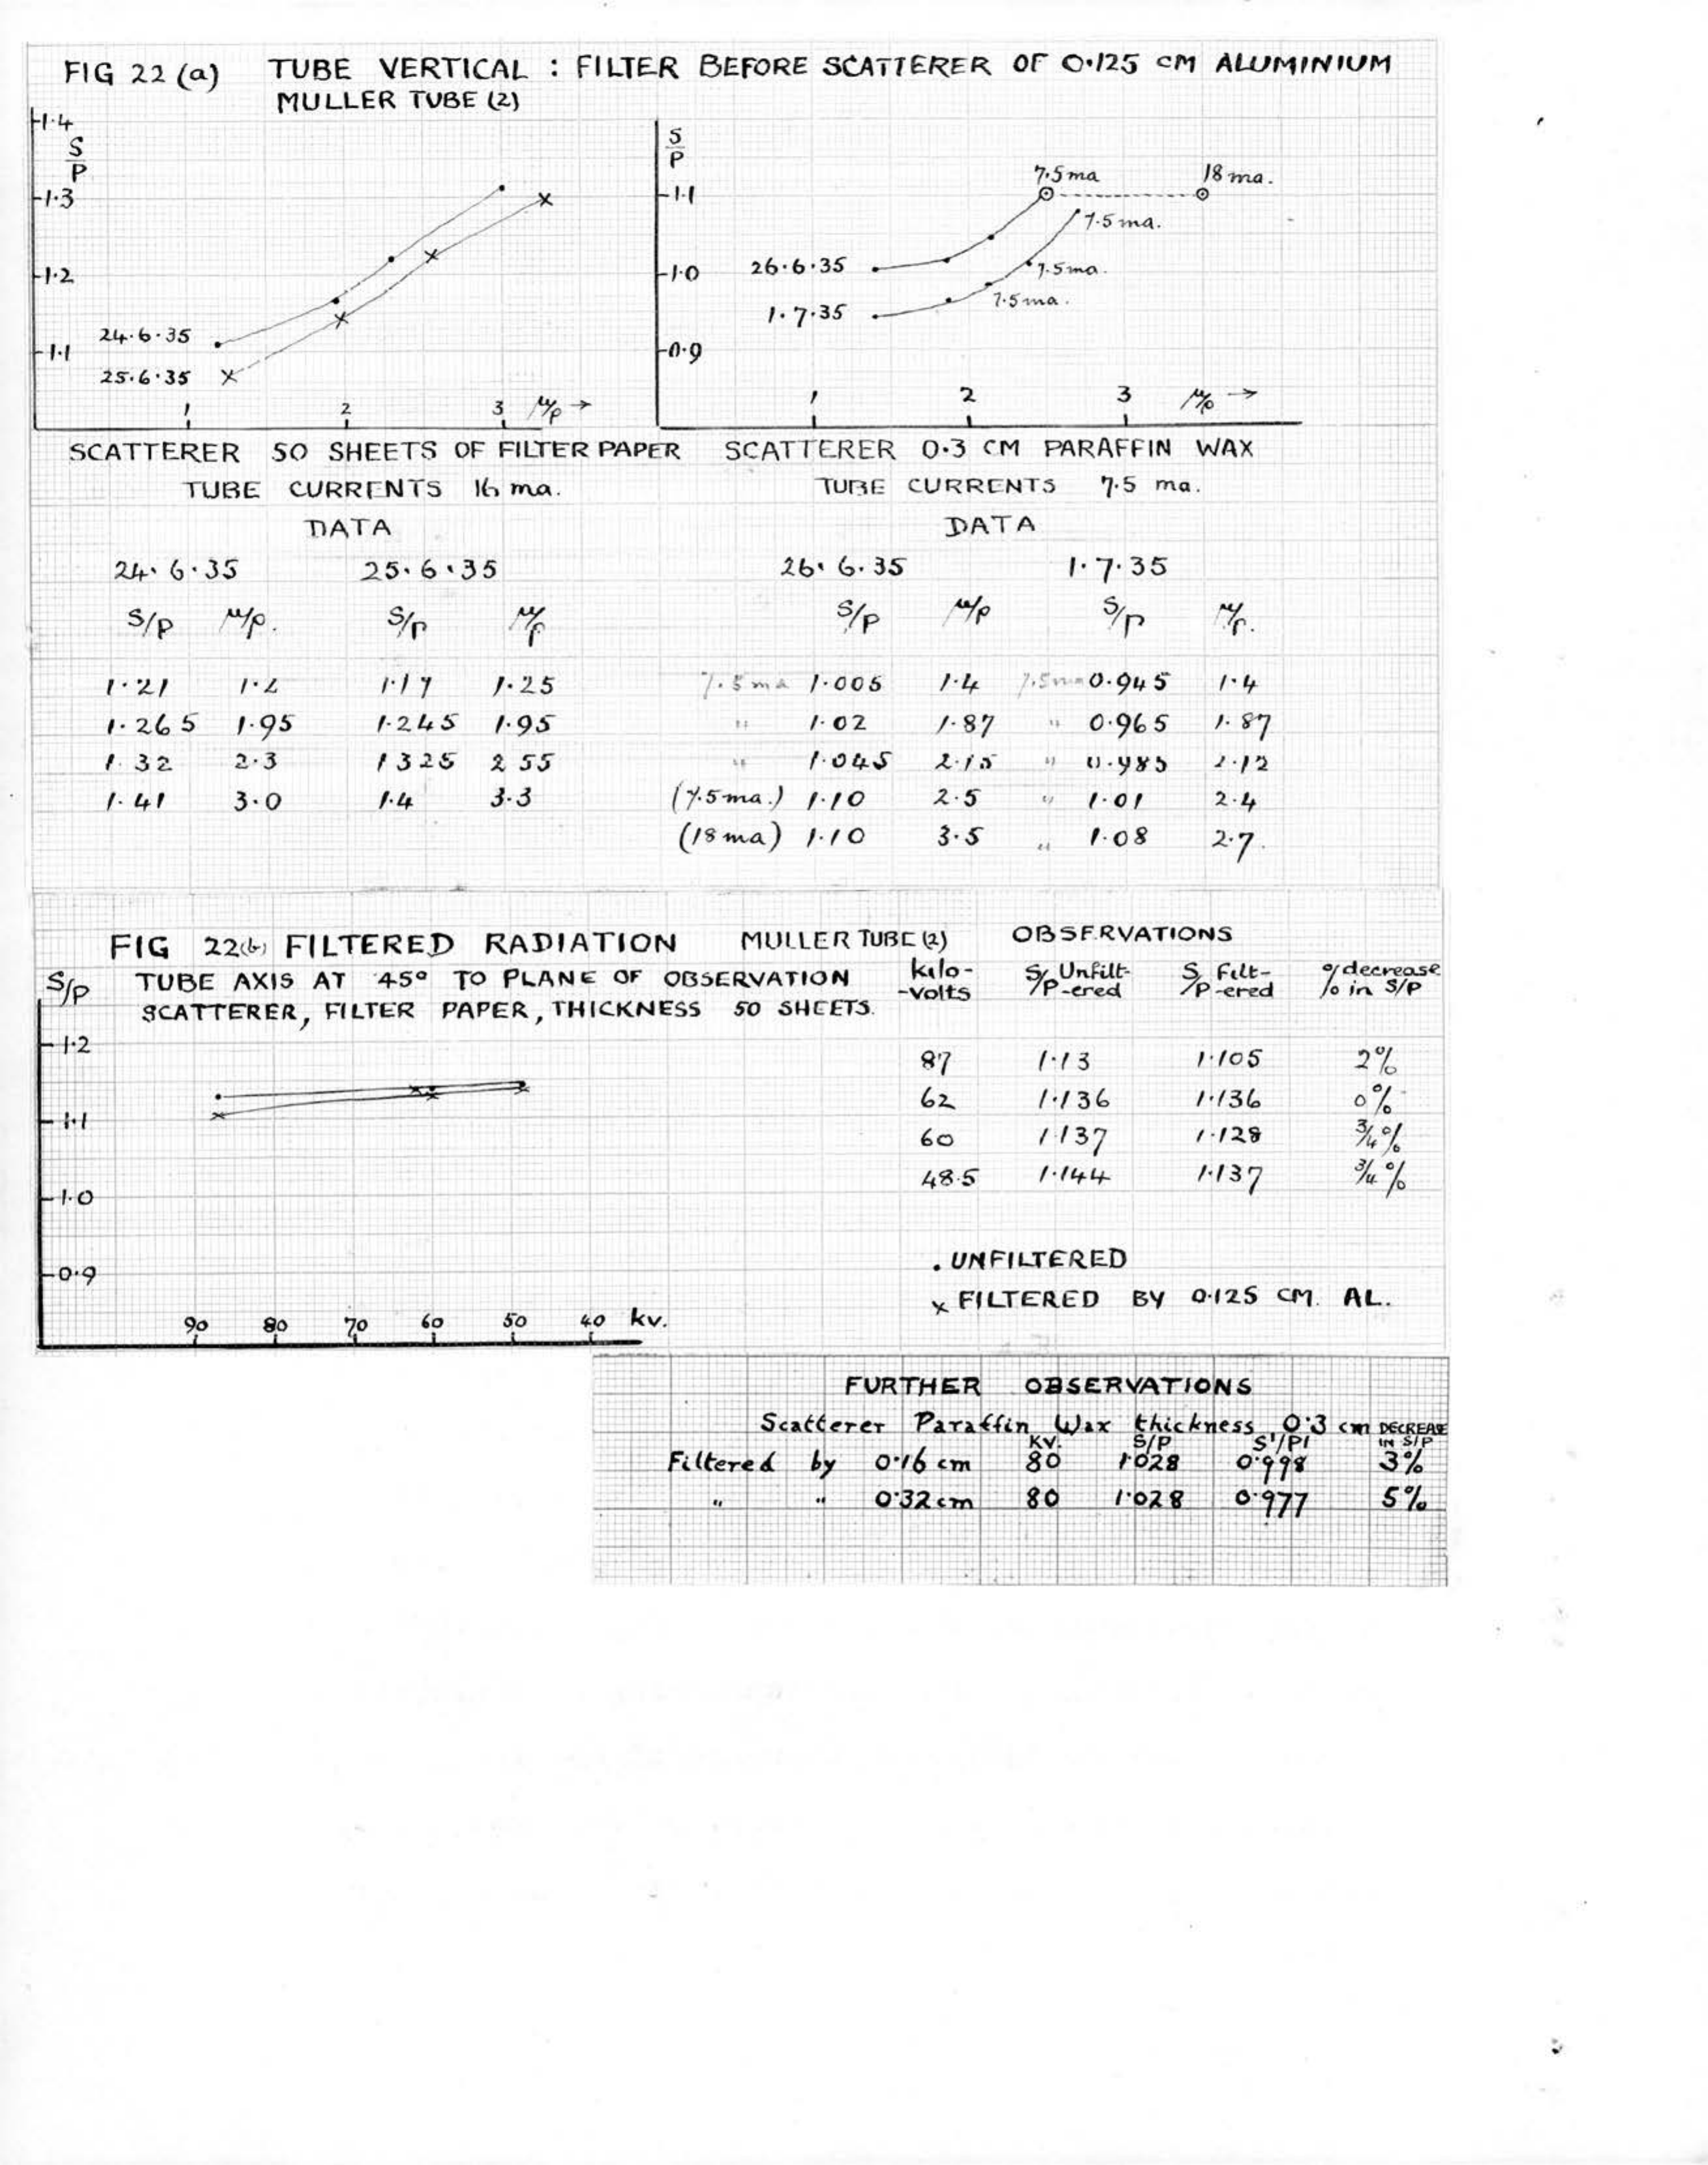 FIG 22 (a) TUBE VERTICAL : FILTER BEFORE SCATTERER OF 0·125 CM ALUMINIUM
MULLER TUBE (2)
1·4
S/P
1·3
1·2
1·1
24·6·35
25·6·35
1 2 3 μ/ρ →
S/P
1·1
1·0
0·9
7·5 ma
18 ma.
7·5 ma.
7·5 ma.
7·5 ma.
26·6·35
1·7·35
1 2 3 μ/ρ →
SCATTERER 50 SHEETS OF FILTER PAPER
TUBE CURRENTS 16 ma.
DATA
24·6·35 25·6·35
S/P μ/ρ. S/P μ/ρ
1·21 1·2 1·17 1·25
1·265 1·95 1·245 1·95
1·32 2·3 1325 2 55
1·41 3·0 1·4 3·3
SCATTERER 0·3 CM PARAFFIN WAX
TUBE CURRENTS 7·5 ma.
DATA
26·6·35 1·7·35
S/P μ/ρ S/P μ/ρ.
7·5 ma 1·005 1·4 7·5 ma 0·945 1·4
" 1·02 1·87 " 0·965 1·87
" 1·045 2·15 " 0·985 2·12
(7.5 ma.) 1·10 2·5 " 1·01 2·4
(18 ma) 1·10 3·5 " 1·08 2·7.
FIG 22(b) FILTERED RADIATION MULLER TUBE (2)
S/P TUBE AXIS AT 45° TO PLANE OF OBSERVATION
SCATTERER, FILTER PAPER, THICKNESS 50 SHEETS.
1·2
1·1
1·0
0·9
90 80 70 60 50 40 kv.
OBSERVATIONS
kilo- S/P Unfilt- S/P Filt- % decrease
-volts -ered -ered in S/P
87 1·13 1·105 2%
62 1·136 1·136 0%
60 1137 1·128 3/4%
48·5 1·144 1·137 3/4%
. UNFILTERED
x FILTERED BY 0·125 CM. AL.
FURTHER OBSERVATIONS
Scatterer Paraffin Wax thickness 0·3 cm DECREASE
KV. S/P S'/P' IN S/P
Filtered by 0·16 cm 80 1·028 0·998 3%
" " 0·32 cm 80 1·028 0·977 5%